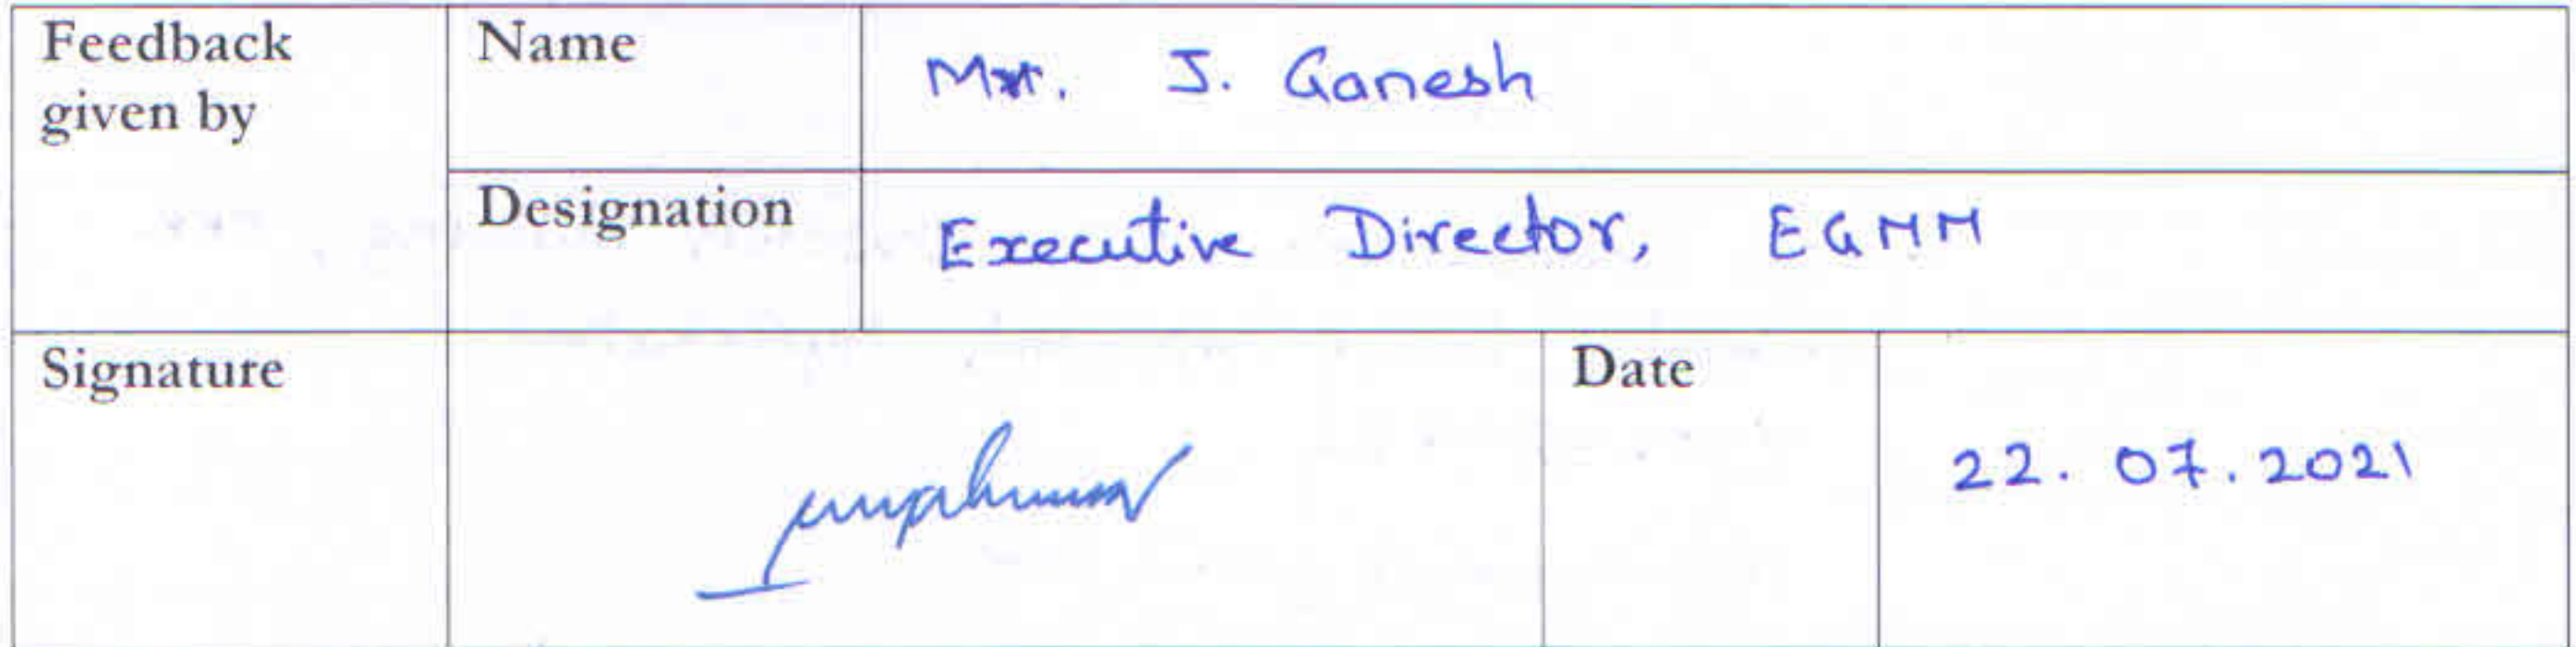 Feedback
given by
Name
Mr. J. Ganesh
Designation
Executive Director, EGMM
Signature
Date
22.07.2021